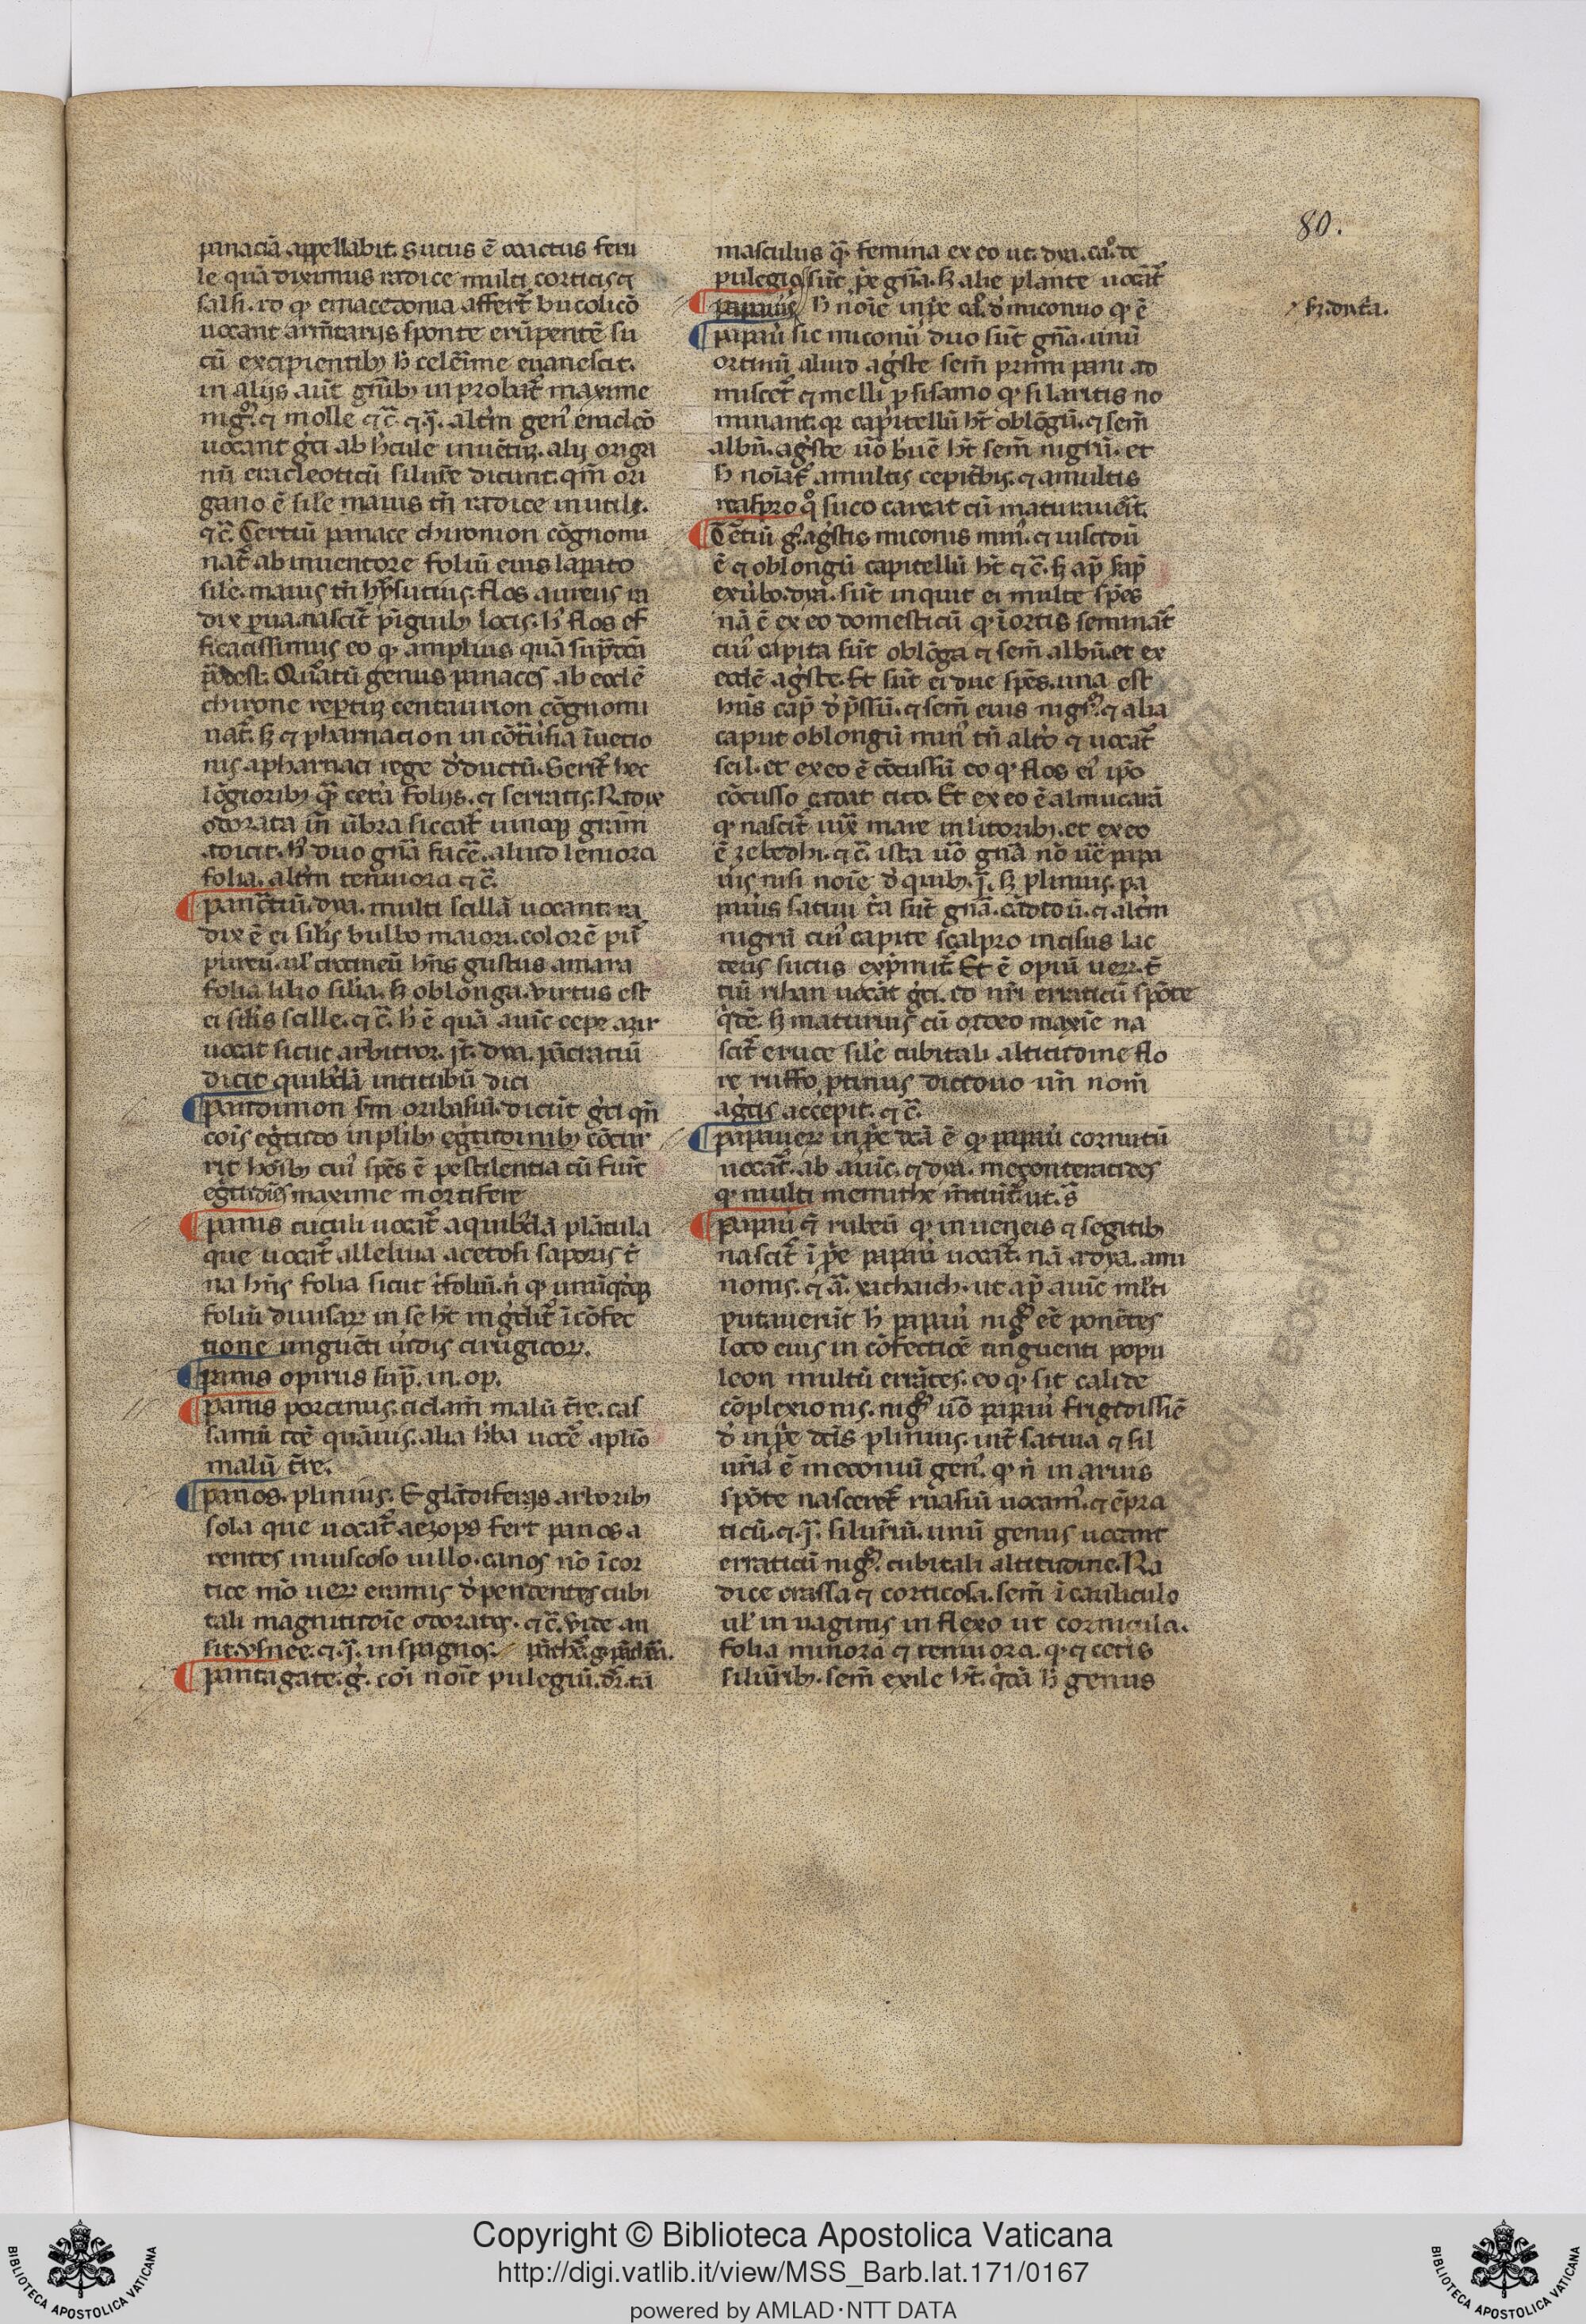 80.
panaciã appellabit. Sucus ẽ coactus feru
le quã diximus radice multi corticis ⁊
salsi. ID qͥ emacedonia affert̃ bucolicõ
uocant arm̃tarijs sponte erũpentẽ su
cũ excipientibꝫ h̃ celeͥime euanescit.
in alijs aũt gñibꝫ in probat̃ maxime
nigꝛ̃ ⁊ molle ⁊ c̃ ⁊ ꝗ̃. altm̃ genꝰ eracleõ
uocant gͥci ab hͥcule inuẽtũ. alij origa
nũ eracleoticũ siluͥe dicunt. qm̃ ori
gano ẽ sile maius tñ radice inutili.
⁊ c̃. Tertiũ panace chironion cõgnomi
nat̃ ab inuentore foliũ eius lapato
sile. maius tñ ⁊ hyrsutius. flos aureus ra
dix parua. nascit̃ pĩguibꝫ locis. hꝰ flos ef
ficacissimus eo qͥ amplius quã supͣdcã
prodest. Quartũ genus panaces ab eodẽ
chirone reptũ centaurion cõgnomi
nat̃. sꝫ ⁊ pharnacion in cõtuͥsia ĩuetio
nis apharnaci rege dͥductũ. Serit̃ hec
lõgioribꝫ qͣ̃ cetͣa folijs. ⁊ serratis. Radix
odorata in ũbra siccat̃ uinoqꝫ gram̃
adicit. hꝰ duo gñã fecẽ. aliud leuiora
folia. altm̃ tenuiora ⁊ c̃.
panctiũ. dya. multi scillã uocant. ra
dix ẽ ei silis bulbo maiori. colorẽ pur
pureũ. ul̃ croceũ hñs gustus amara
folia lilio silia. sꝫ oblonga. virtus est
ei silis scille. ⁊ c̃. h̃ ẽ quã auic̃ cepe azir
uocat sicut arbitror. it̃. dya. pãcratiũ
dicit quibdã intitibũ dici
pandimon sm̃ oribasiũ. dicũt gͥci qñ
cõis egͥtudo in plibꝫ egͥtudinibꝫ cõcur
rit hoĩbꝫ cuiꝰ spẽs ẽ pestilentia cũ fuit
egͥtudies maxime mortifere
panis cuculi uocat̃ aquibdã plãtula
que uocat̃ alleluia acetosi saporis t̃
na hñs folia sicut tͥfoliũ. ñ qͥ unũqͩqꝫ
foliũ diuisaꝝ in se ht̃ ingͥdit̃ ĩ cõfec
tione unguẽti uiͥdis cirugicoꝝ.
panis opirus supͣ. in. op.
panis porcinus. ciclam̃ malũ tr̃e. cas
samũ idẽ quãuis. alia hͥba uocẽ aplĩo
malũ tr̃e.
panos. plinius. E glãdiferijs arboribꝫ
sola que uocat̃ aezops fert panos a
rentes muscoso uillo. canos nõ ĩ cor
tice mõ ueꝝ eramis dͥpendentes cubi
tali magnitudie odorates. ⁊ c̃. vide an
sit. vsnee. ⁊ ꝗ̃. in spagnos.
pantagate. g̃. coĩ noĩe pulegiũ. dr̃. tã
masculus qͣ̃. femina ex eo ut. dya. ca.º de
pulegio sũt p̃e gñã. sꝫ alie plante uocãt̃
papauͥs h̃ noĩe in p̃e ca.º dͥ miconio qͥ ẽ
fꝫ. dyta.
papauͥ sic miconũ duo sũt gñã. unũ
ortinũ aliud agͥste sem̃ primi pani ad
miscet̃ ⁊ melli p sisamo qͥ silaritis no
minant. qꝛ capitellũ ht̃ oblõgũ. ⁊ sem̃
albũ. agͥste uõ bͥuẽ ht̃ sem̃ nigꝛũ. et
h̃ noĩat̃ amultis cepitͥbis. ⁊ amultis
reaspro qº suco careat cũ maturauẽit.
Tẽtiũ g.̃ agͥstis miconis minꝰ. ⁊ uiscidũ
ẽ ⁊ oblongũ capitellũ ht̃ ⁊ c̃. sꝫ ap̃ sap̃
exũbo. dya. sũt inquit ei multe spẽs
nã ẽ ex eo domesticũ qͥ ĩ ortis seminat̃
cuiꝰ capita sũt oblõga ⁊ sem̃ albũ. et ex
eodẽ agͥste. Et sũt ei due spẽs. una est
hñs cap̃ dͥp̃ssũ. ⁊ sem̃ eius nigꝛ̃. ⁊ alia
caput oblongũ minꝰ tñ altͦo ⁊ uocat̃
scil. et ex eo ẽ cõcussũ eo qͥ flos eiꝰ ip̃o
cõcusso cadat cito. Et ex eo ẽ almucarã
qͥ nascit̃ iuxͣ mare in litoribꝫ. et ex eo
ẽ zebedhi. ⁊ c̃. ista uõ gñã nõ uẽ papa
uͥis nisi noĩe dͥ quibꝫ. ꝗ̃. sꝫ plinius. pa
pauͥis satiui tͥa sũt gñã. cãdidũ. ⁊ altm̃
nigrũ cuiꝰ capite scalpro incisus lac
teus sucus exp̃mit̃. Et ẽ opiũ ueꝝ. t̃
tiũ rihan uocãt gͥci. ID nr̃i erraticũ spõte
qͥdẽ. sꝫ maturius cũ ordeo maxĩe na
scit̃ eruce sile cubitali altitudine flo
re ruffo ptinus deciduo uñ nom̃
agͥcis accepit. ⁊ c̃.
papaueꝝ in p̃e dcã ẽ qͥ papauͥ cornutũ
uocat̃. ab auic̃. ⁊ dya. meconteratides
qͥ multi memithe m̃tiut̃. ut. s̃
papauͥ ẽ rubeũ qͥ in ueneis ⁊ segitibꝫ
nascit̃ ĩ p̃e papauͥ uocat̃. nã a dya. amu
nonis. ⁊ ã. xachaich. ut ap̃ auic̃ ml̃ti
putauerũt h̃ papauͥ nigꝝ eẽ ponẽtes
loco eius in cõfectiõe unguenti popu
leon multũ errãtes. eo qͥ sit calide
cõplexionis. nigꝝ uõ papauͥ frigidissiẽ
dͥ in p̃e dcĩs plinius. int̃ satiua ⁊ sil
uñã ẽ meconiũ genꝰ. qͥ ñ in aruis
spõte nasceret̃ rũasiũ uocamꝰ. ⁊ ẽpra
ticũ. ⁊ ꝗ̃. siluͥriũ. unũ genus uocant
erraticũ nigꝝ. cubitali altitudine. Ra
dice crassa ⁊ corticosa. sem̃ ĩ cauliculo
ul̃ in uaginis in flexo ut cornicula.
folia minora ⁊ tenuiora. qͣ ⁊ cetͥis
siluͥribꝫ. sem̃ exile ht̃. qͥdã h̃ genus
Copyright © Biblioteca Apostolica Vaticana
http://digi.vatlib.it/view/MSS_Barb.lat.171/0167
powered by AMLAD·NTT DATA
BIBLIOTECA APOSTOLICA VATICANA
BIBLIOTECA APOSTOLICA VATICANA